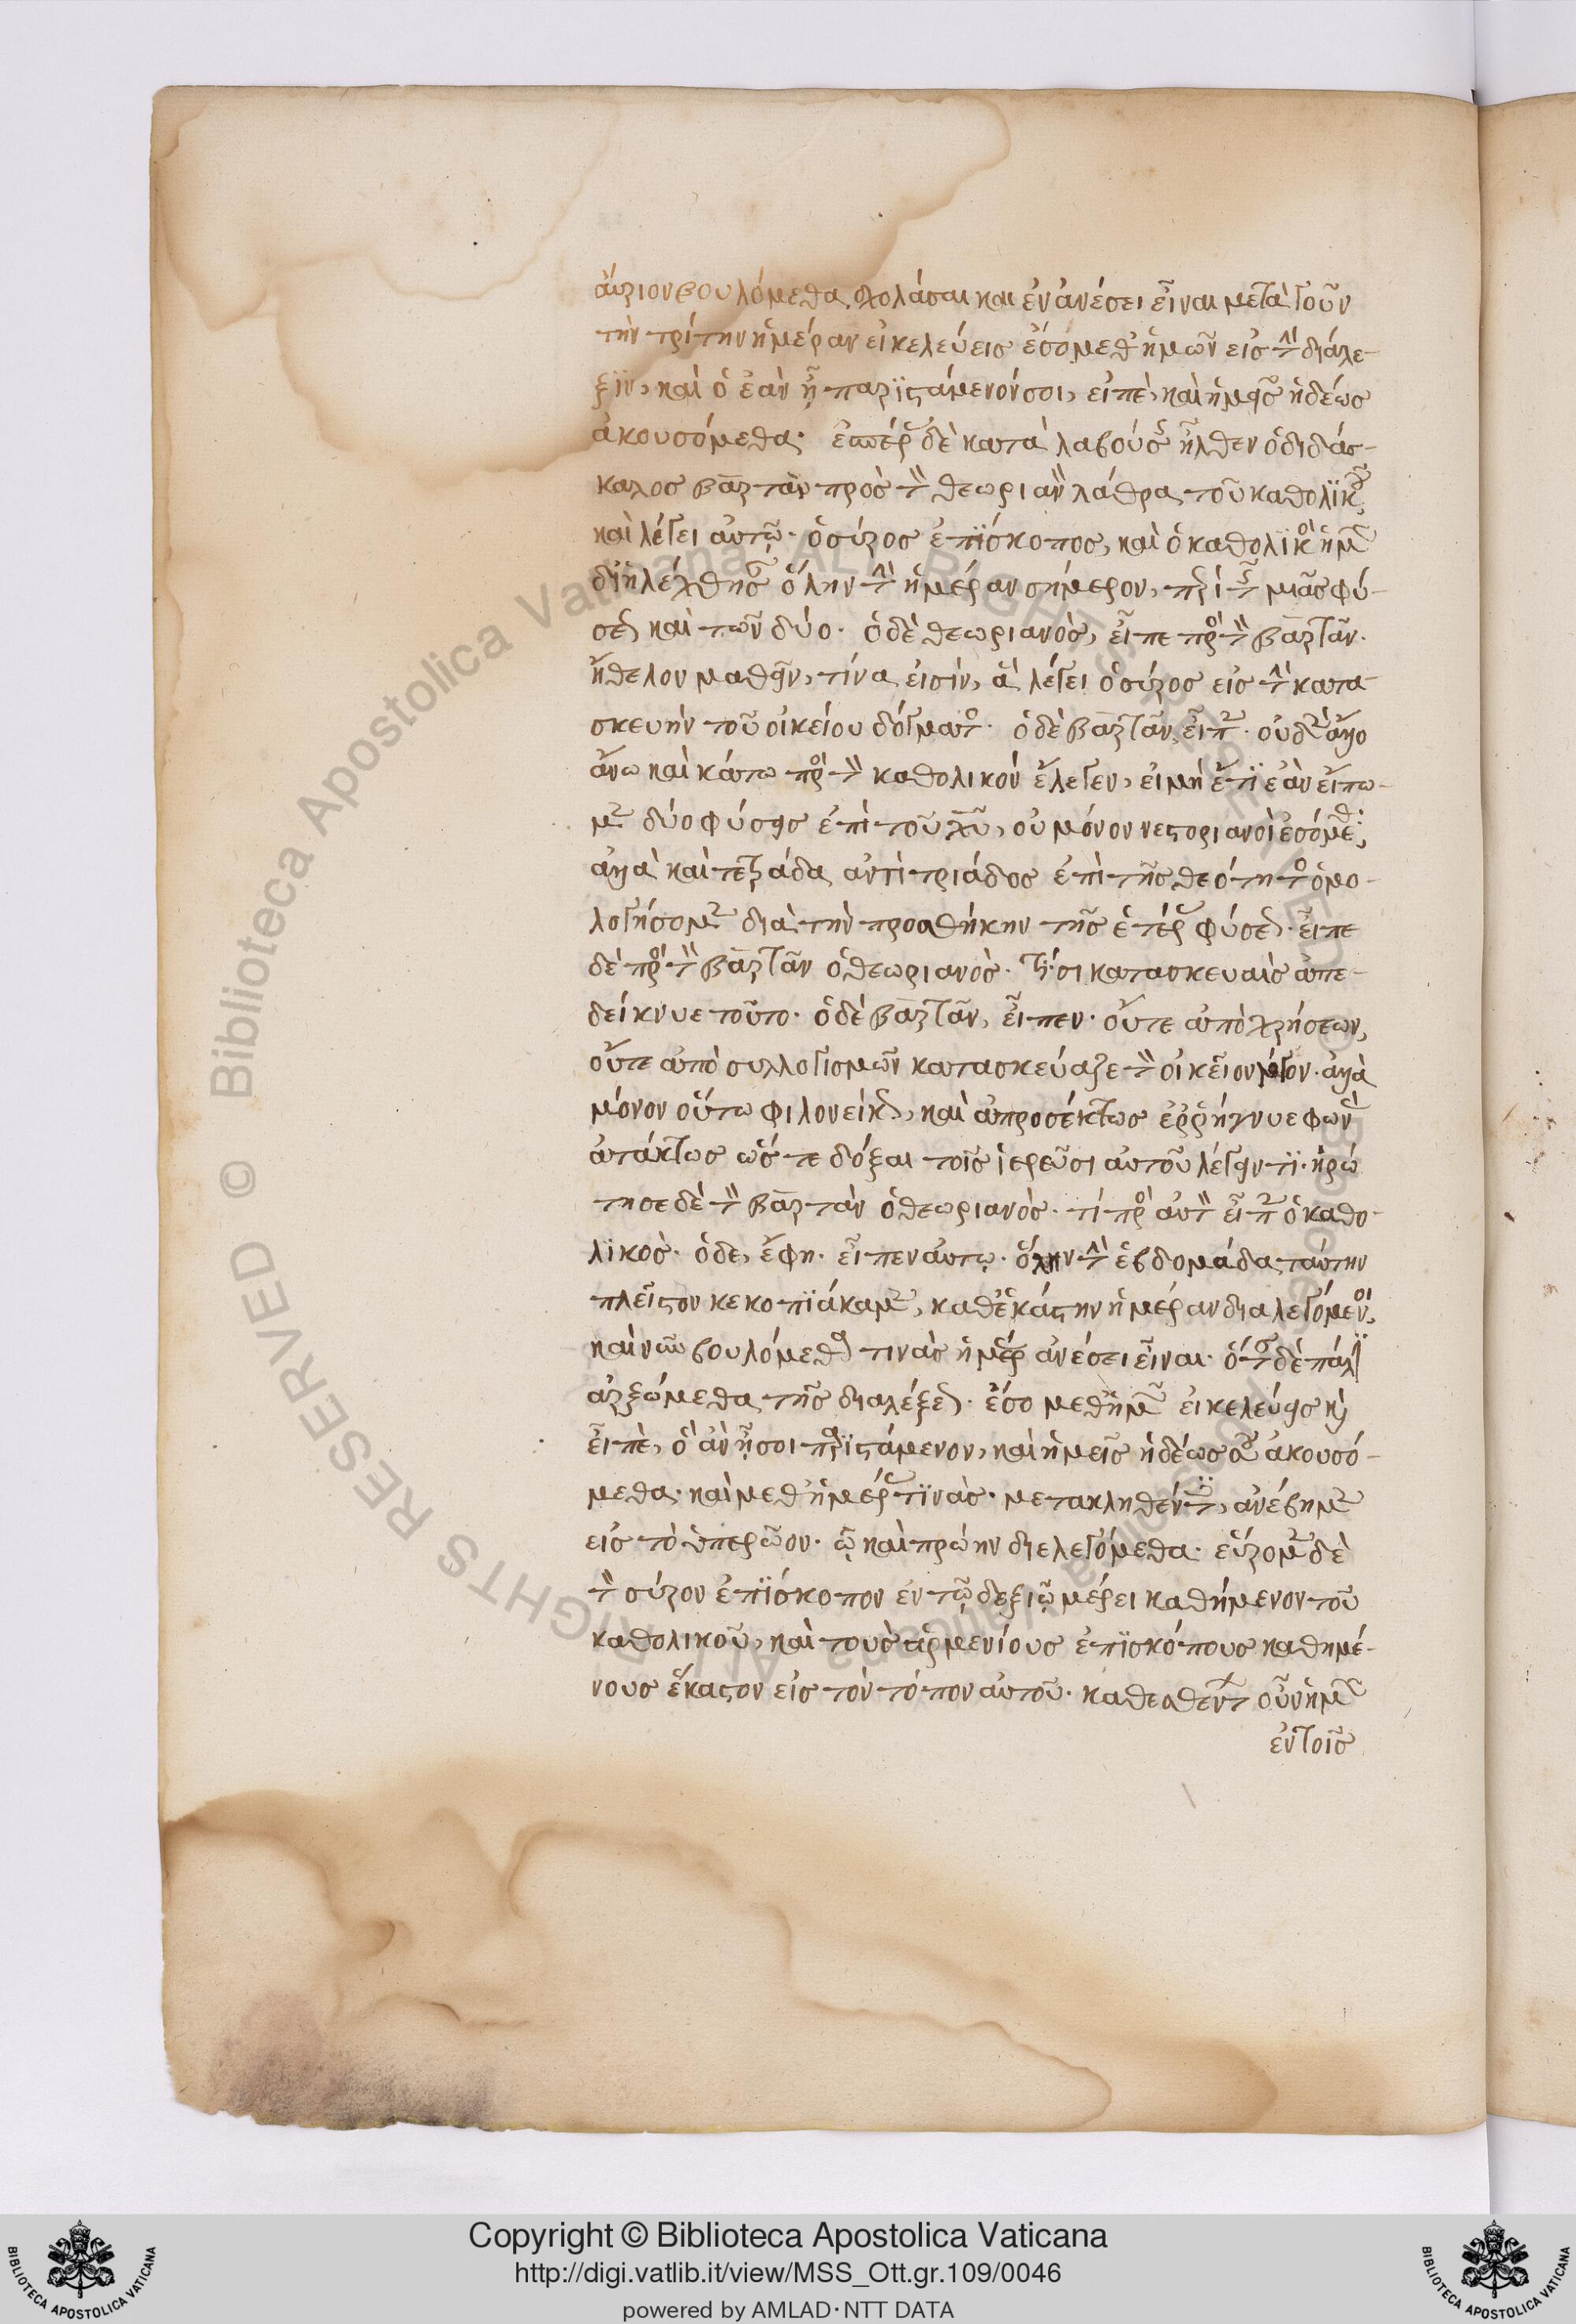 αὔριον βουλόμεθα σχολάσαι και ἐν ἀνέσει εἶναι μετὰ γοῦν
τὴν τρίτην ἡμέραν εἰ κελεύεις ἔσο μεθ' ἡμῶν εἰς τὴν διάλε-
ξϊν, καὶ ὃ ἐὰν ᾖ παρϊστάμενόν σοι, εἰπὲ, καὶ ἡμεῖς ἡδέως
ἀκουσόμεθα· ἑσπέρας δὲ καταλαβούσης ἦλθεν ὁ διδάσ-
καλος βαρτὰν πρὸς τὸν θεωριανὸν λάθρα τοῦ καθολϊκοῦ,
καὶ λέγει αὐτῷ· ὁ σύρος ἐπΐσκοπος, καὶ ὁ καθολϊκὸς ἡμῶν
διηλέχθησαν ὅλην τὴν ἡμέραν σήμερον, περὶ τῆς μιᾶς φύ-
σεως καὶ τῶν δύο· ὁ δὲ θεωριανὸς, εἶπε πρὸς τὸν βαρτὰν·
ἤθελον μαθεῖν, τίνα εἰσὶν, ἃ λέγει ὁ σύρος εἰς τὴν κατα
σκευὴν τοῦ οἰκείου δόγματος· ὁ δὲ βαρτὰν, εἶπεν· οὐδὲν ἄλλο
ἄνω καὶ κάτω πρὸς τὸν καθολικὸν ἔλεγεν, εἰ μὴ ὅτϊ ἐὰν εἴπω-
μεν δύο φύσεις ἐπὶ τοῦ χῦ, οὐ μόνον νεστοριανοὶ ἐσόμεθα·
ἀλλὰ καὶ τετράδα ἀντὶ τριάδος ἐπὶ τῆς θεότητος ὁμο-
λογήσομεν διὰ τὴν προσθήκην τῆς ἑτέρας φύσεως· εἶπε
δὲ πρὸς τὸν βαρτὰν ὁ θεωριανὸς· τίσι κατασκευαῖς ἀπε-
δείκνυε τοῦτο· ὁ δὲ βαρτὰν, εἶπεν· οὔτε ἀπὸ χρήσεων,
οὔτε ἀπὸ συλλογισμῶν κατασκεύαζε τὸν οἰκεῖον λόγον· ἀλλὰ
μόνον οὕτω φιλονείκως, καὶ ἀπροσέκτως ἐῤῥήγνυε φωνὴν
ἀτάκτως ὥστε δόξαι τοῖς ἱερεῦσι αὐτοῦ λέγειν τϊ· ἠρώ
τησε δὲ τὸν βαρτὰν ὁ θεωριανὸς· τί πρὸς αὐτὸν εἶπεν ὁ καθο-
λϊκὸς· ὁ δε, ἔφη· εἶπεν αὐτῳ· ὅλην τὴν ἑβδομάδα ταύτην
πλεῖστον κεκοπϊάκαμεν, καθ' ἑκάστην ἡμέραν διαλεγόμενοι,
καὶ νῦν βουλόμεθα τινὰς ἡμέρας ἀνέσει εἶναι· ὅταν δὲ πάλϊν
ἀρξώμεθα τῆς διαλέξεως· ἔσο μεθ' ἡμῶν εἰ κελεύεις καὶ
εἰπὲ, ὃ ἂν ᾖ σοι παρϊστάμενον, καὶ ἡμεῖς ἡδέως σου ἀκουσό-
μεθα· καὶ μεθ' ἡμέρας τϊνὰς· μετακληθέντες, ἀνέβημεν
εἰς τὸ ὑπερῷον· ᾧ καὶ πρώην διελεγόμεθα· εὕρομεν δὲ
τὸν σύρον ἐπΐσκοπον ἐν τῷ δεξιῷ μέρει καθήμενον τοῦ
καθολικοῦ, καὶ τοὺς ἀρμενίους ἐπϊσκόπους καθημέ-
νους ἕκαστον εἰς τὸν τόπον αὐτοῦ· καθεσθέντων οὖν ἡμῶν
ἐν τοῖς
Copyright © Biblioteca Apostolica Vaticana
http://digi.vatlib.it/view/MSS_Ott.gr.109/0046
powered by AMLAD·NTT DATA